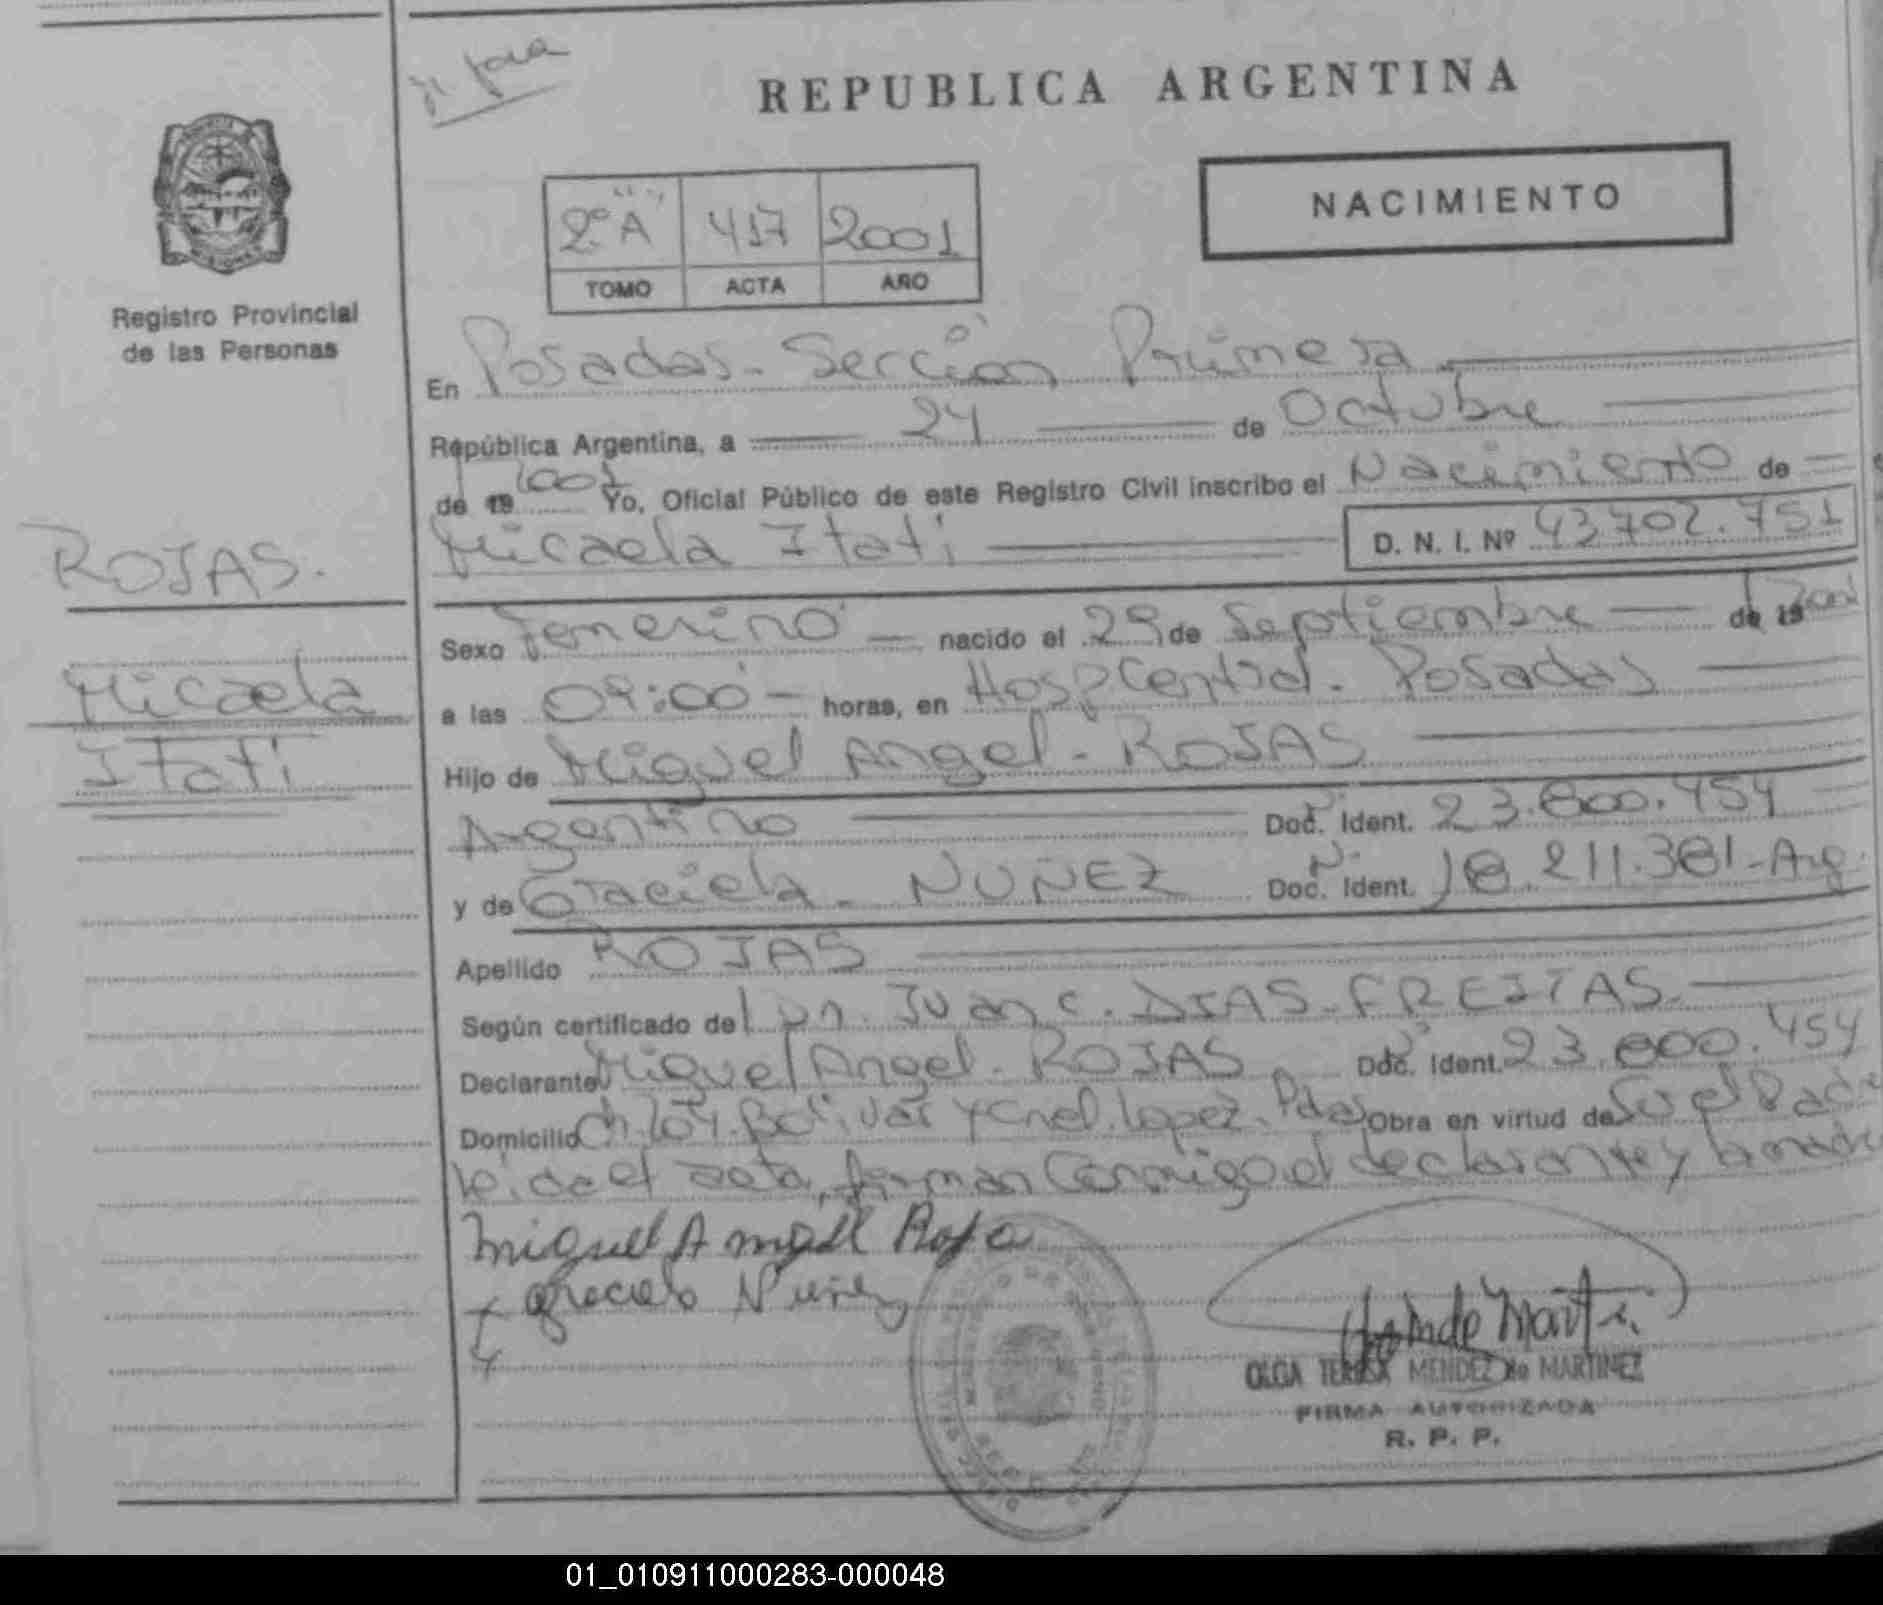 REPUBLICA ARGENTINA
NACIMIENTO
2º A 417 2001
TOMO ACTA AÑO
Registro Provincial
de las Personas
ROJAS.
Micaela
Itati
En Posadas - Sección Primera
República Argentina, a 24 de Octubre
de 19 2001 Yo, Oficial Público de este Registro Civil inscribo el Nacimiento de
Micaela Itati D. N. I. Nº 43702.751
Sexo femenino nacido el 29 de Septiembre de 19 2001
a las 09:00 horas, en Hosp Central - Posadas
Hijo de Miguel Angel - ROJAS
Argentino Doc. Ident. 23.800.454
y de Graciela - NUÑEZ Doc. Ident. 18.211.381 - Arg.
Apellido ROJAS
Según certificado del Dr. Juan C. DIAS - FREITAS
Declarante Miguel Angel - ROJAS Doc. Ident. 23.800.454
Domicilio Ch. 104 - Bolivar y Cnel. Lopez - Pdas Obra en virtud de Ser el Padre
leida el acta, firman Conmigo el declarante y la madre
Miguel Angell Roja
Graciela Nuñez
OLGA TERESA MENDEZ de MARTINEZ
FIRMA AUTORIZADA
R. P. P.
01_010911000283-000048